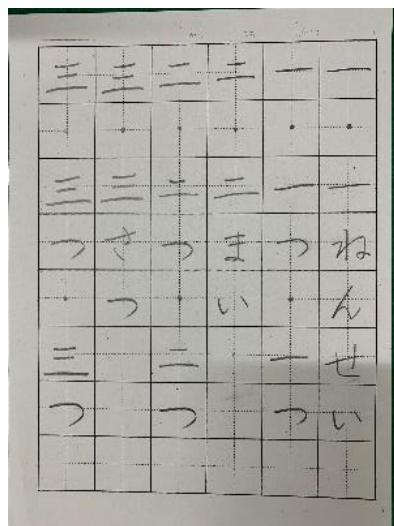 一・一ねんせい
一・一つ・一つ
二・二まい
二・二つ・二つ
三・三さつ
三・三つ・三つ